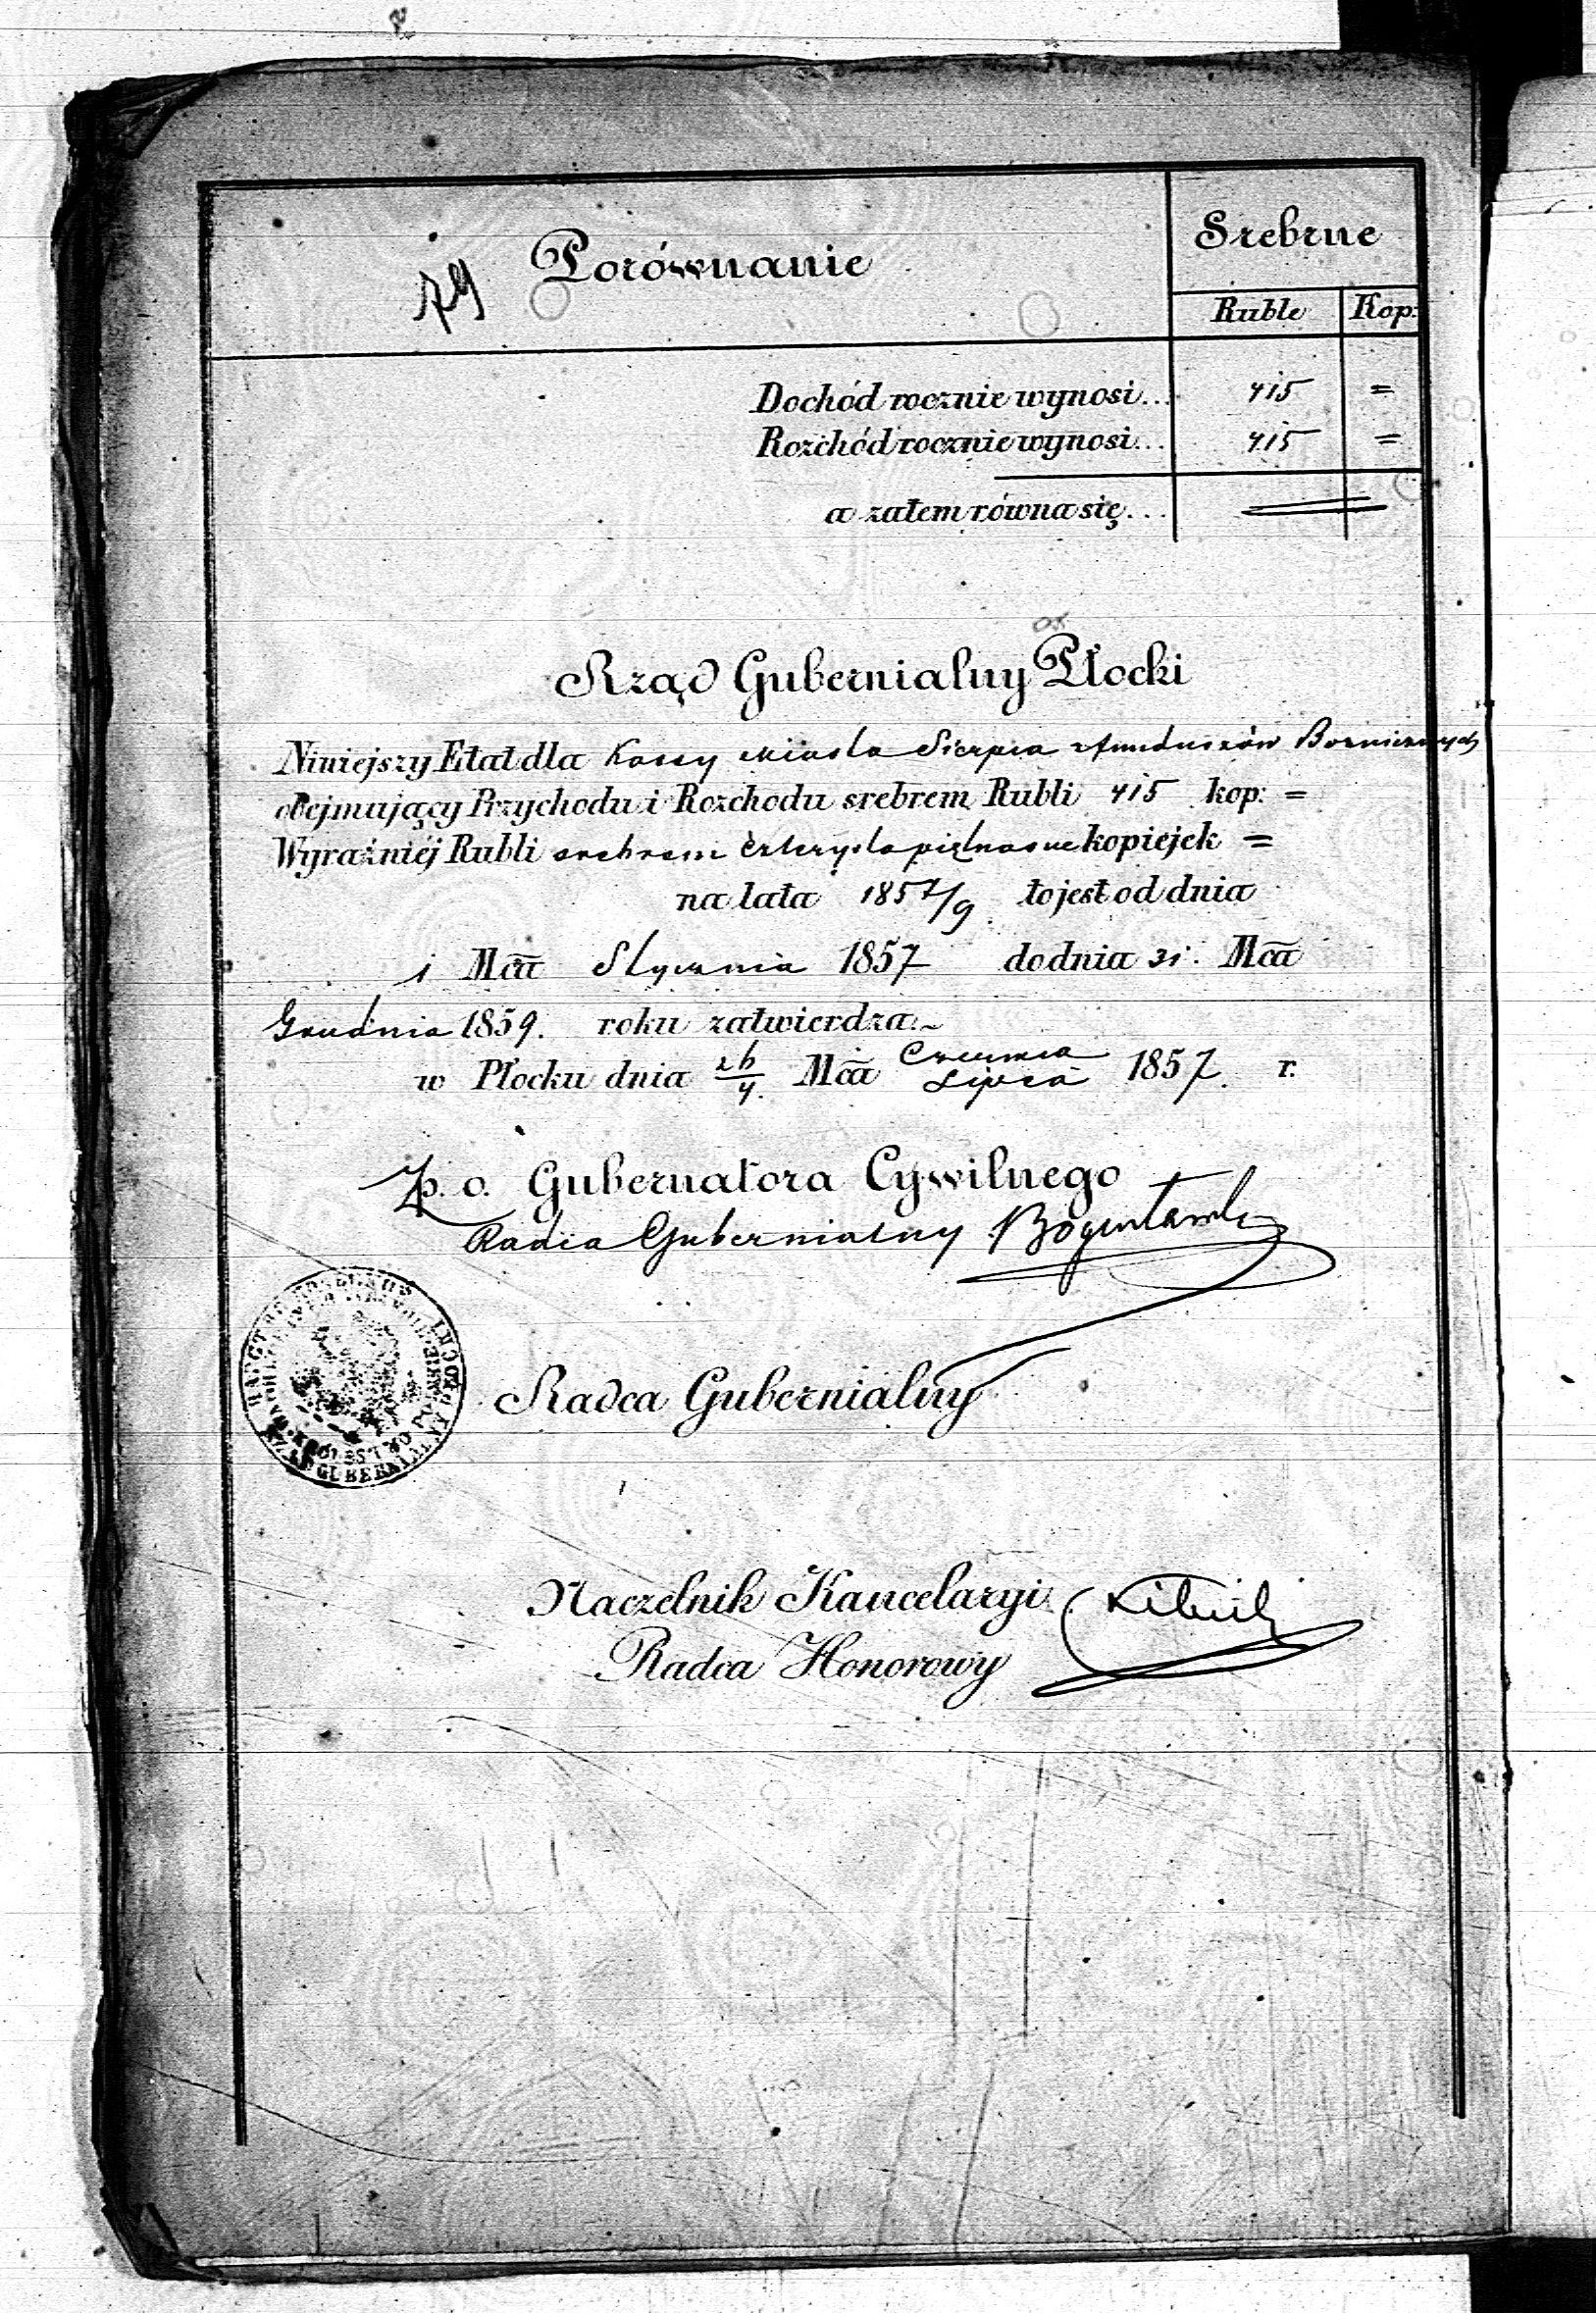 Porównanie
79
Srebrne
Ruble Kop:
Dochód rocznie wynosi... 415 =
Rozchód rocznie wynosi... 415 =
a zatem równa się...
Rząd Gubernialny Płocki
Niniejszy Etat dla Kassy Miasta Sierpca z funduszów Bozniczych
obejmujący Przychodu i Rozchodu srebrem Rubli 415 kop: =
Wyraźniéj Rubli srebrem czterysta piętnascie kopiejek =
na lata 1857/9 to jest od dnia
1 Mca Stycznia 1857 do dnia 31. Mca
Grudnia 1859. roku zatwierdza.~
w Płocku dnia 26/4. Mca Czerwca/Lipca 1857. r.
p. o. Gubernatora Cywilnego
Radca Gubernialny
Radca Gubernialny
RZĄD GUBERNIALNY PŁOCKI
KRÓLESTWO POLSKIE
Naczelnik Kancelaryi
Radca Honorowy